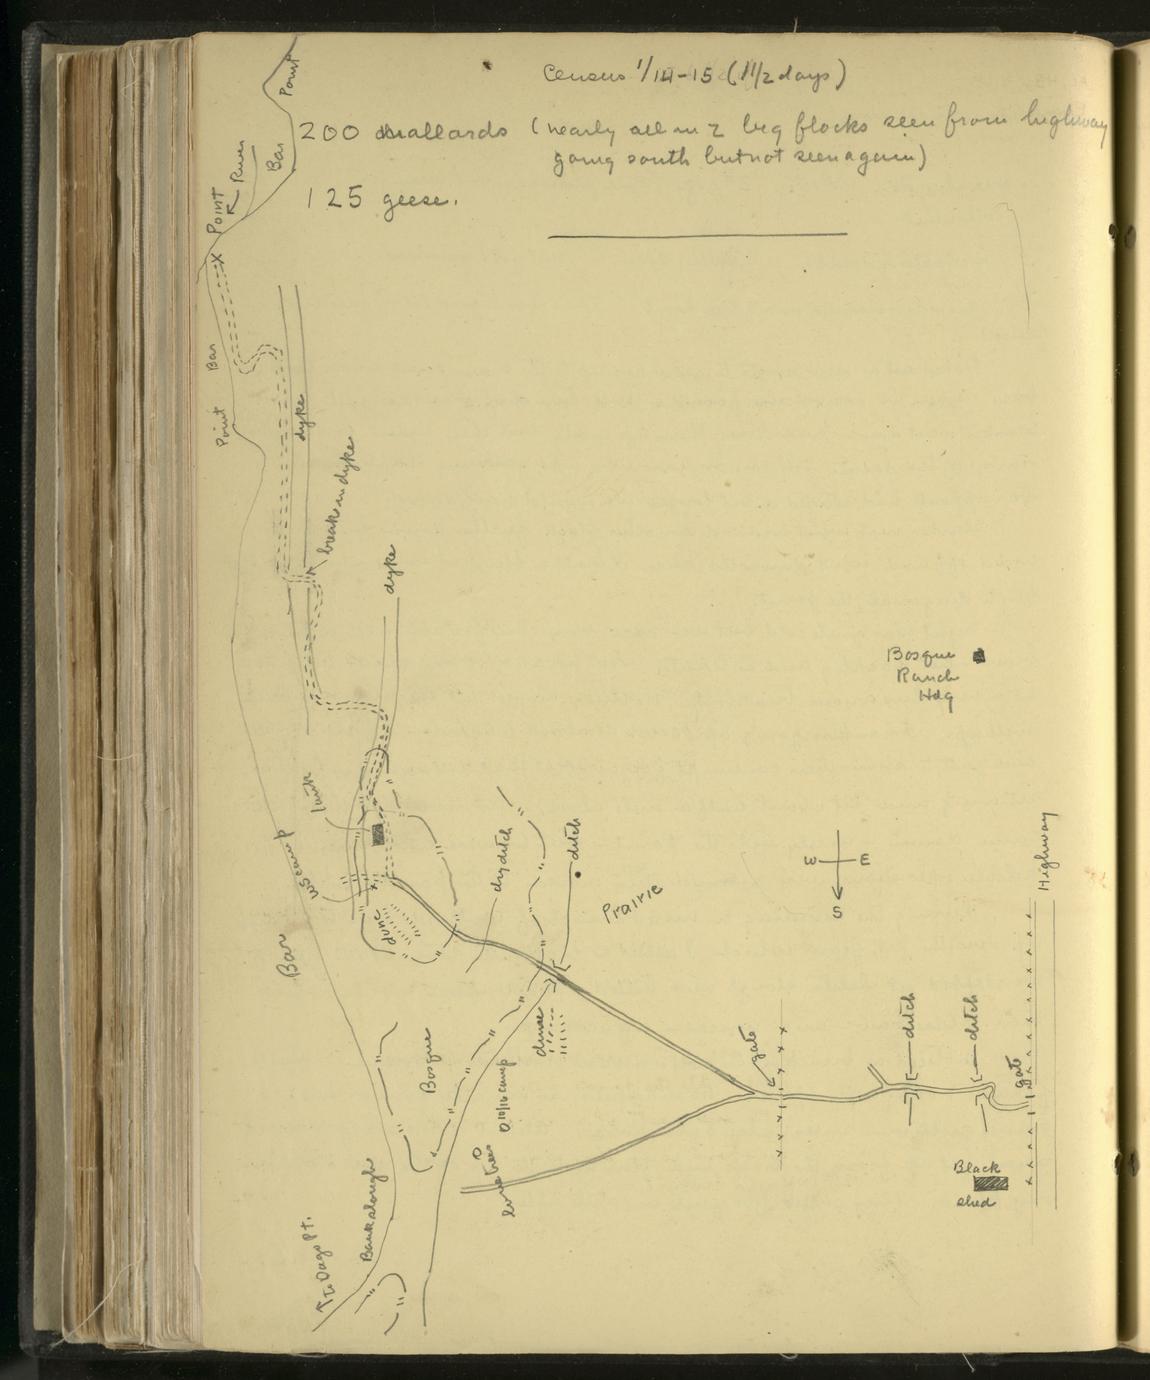 Census 1/14-15 (1 1/2 days)
200 mallards (nearly all in 2 big flocks seen from highway
going south but not seen again)
125 geese.
Point
Bar
River
Point
Bar
Point
dyke
break in dyke
dyke
Bosque
Ranch
Hdq
tank
camp
Bar
dune
dry ditch
ditch
Prairie
W E
S
Highway
Bosque
dune
10/16 camp
trees
gate
ditch
ditch
gate
Black
shed
Bank along
To Dago Pt.